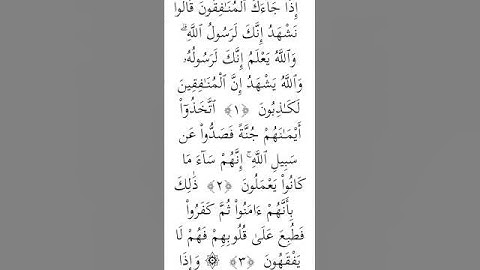 إِذَا جَآءَكَ ٱلْمُنَـٰفِقُونَ قَالُوا۟
نَشْهَدُ إِنَّكَ لَرَسُولُ ٱللَّهِ ۗ
وَٱللَّهُ يَعْلَمُ إِنَّكَ لَرَسُولُهُۥ
وَٱللَّهُ يَشْهَدُ إِنَّ ٱلْمُنَـٰفِقِينَ
لَكَـٰذِبُونَ ﴿١﴾ ٱتَّخَذُوٓا۟
أَيْمَـٰنَهُمْ جُنَّةً فَصَدُّوا۟ عَن
سَبِيلِ ٱللَّهِ ۚ إِنَّهُمْ سَآءَ مَا
كَانُوا۟ يَعْمَلُونَ ﴿٢﴾ ذَٰلِكَ
بِأَنَّهُمْ ءَامَنُوا۟ ثُمَّ كَفَرُوا۟
فَطُبِعَ عَلَىٰ قُلُوبِهِمْ فَهُمْ لَا
يَفْقَهُونَ ﴿٣﴾ ۞ وَإِذَا